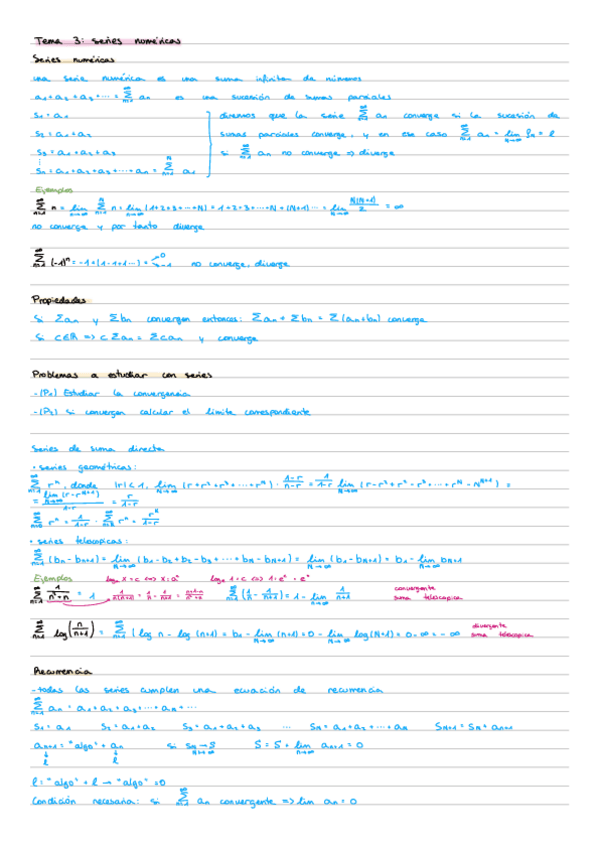 Tema 3: series numéricas
Series numéricas
una serie numérica es una suma infinitan de números
a₁ + a₂ + a₃ + ··· = ∑ₙ₌₁^∞ aₙ es una sucesión de sumas parciales
S₁ = a₁ diremos que la serie ∑ₙ₌₁^∞ aₙ converge si la sucesión de
S₂ = a₁ + a₂ sumas parciales converge, y en ese caso ∑ₙ₌₁^∞ aₙ = lim = l
S₃ = a₁ + a₂ + a₃ si ∑ₙ₌₁^∞ aₙ no converge ⇒ diverge
⋮
Sₙ = a₁ + a₂ + a₃ + ··· + aₙ = ∑
Ejemplos
∑ₙ₌₁^∞ n = lim ∑ n = lim (1+2+3+···+N) = 1+2+3+···+N+(N+1)··· = lim N(N+1)/2 = ∞
no converge y por tanto diverge
∑ₙ₌₁^∞ (-1)ⁿ = -1+1-1+1··· = 0 -1 no converge, diverge
Propiedades
Si ∑aₙ y ∑bₙ convergen entonces: ∑aₙ + ∑bₙ = ∑(aₙ+bₙ) converge
Si c∈ℝ ⇒ c∑aₙ = ∑caₙ y converge
Problemas a estudiar con series
-(P₁) Estudiar la convergencia
-(P₂) Si convergen calcular el límite correspondiente
Series de suma directa
· series geométricas:
∑ rⁿ, donde |r|<1, lim (r+r²+r³+···+rᴺ) · (1-r)/(1-r) = 1/(1-r) lim
= r/(1-r)
∑ rⁿ = 1/(1-r)
· series telescópicas:
∑ₙ₌₁^∞ (bₙ-bₙ₊₁) = lim (b₁-b₂+b₂-b₃+···+bₙ-bₙ₊₁) = lim (b₁-bₙ₊₁) = b₁ - lim bₙ₊₁
Ejemplos
∑ₙ₌₁^∞ 1/(n²+n) = 1 1/(n(n+1)) = 1/n - 1/(n+1) ∑ₙ₌₁^∞ (1/n - 1/(n+1)) = 1 - lim 1/(n+1) convergente
suma telescópica
∑ₙ₌₁^∞ log(n/(n+1)) = ∑ₙ₌₁^∞ (log n - log (n+1) = b₁ - lim (n+1) = 0 - lim log(N+1) = 0 - ∞ = -∞ divergente
suma telescópica
Recurrencia
-todas las series cumplen una ecuación de recurrencia
∑ₙ₌₁^∞ aₙ = a₁ + a₂ + a₃ + ··· + aₙ + ···
S₁ = a₁ S₂ = a₁+a₂ S₃ = a₁+a₂+a₃ ··· Sₙ = a₁+a₂+···+aₙ Sₙ₊₁ = Sₙ + aₙ₊₁
aₙ₊₁ = "algo" + aₙ si Sₙ → S S = S + lim aₙ₊₁ = 0
l l
l = "algo" + l → "algo" = 0
Condición necesaria: si ∑ₙ₌₁^∞ aₙ convergente ⇒ lim aₙ = 0